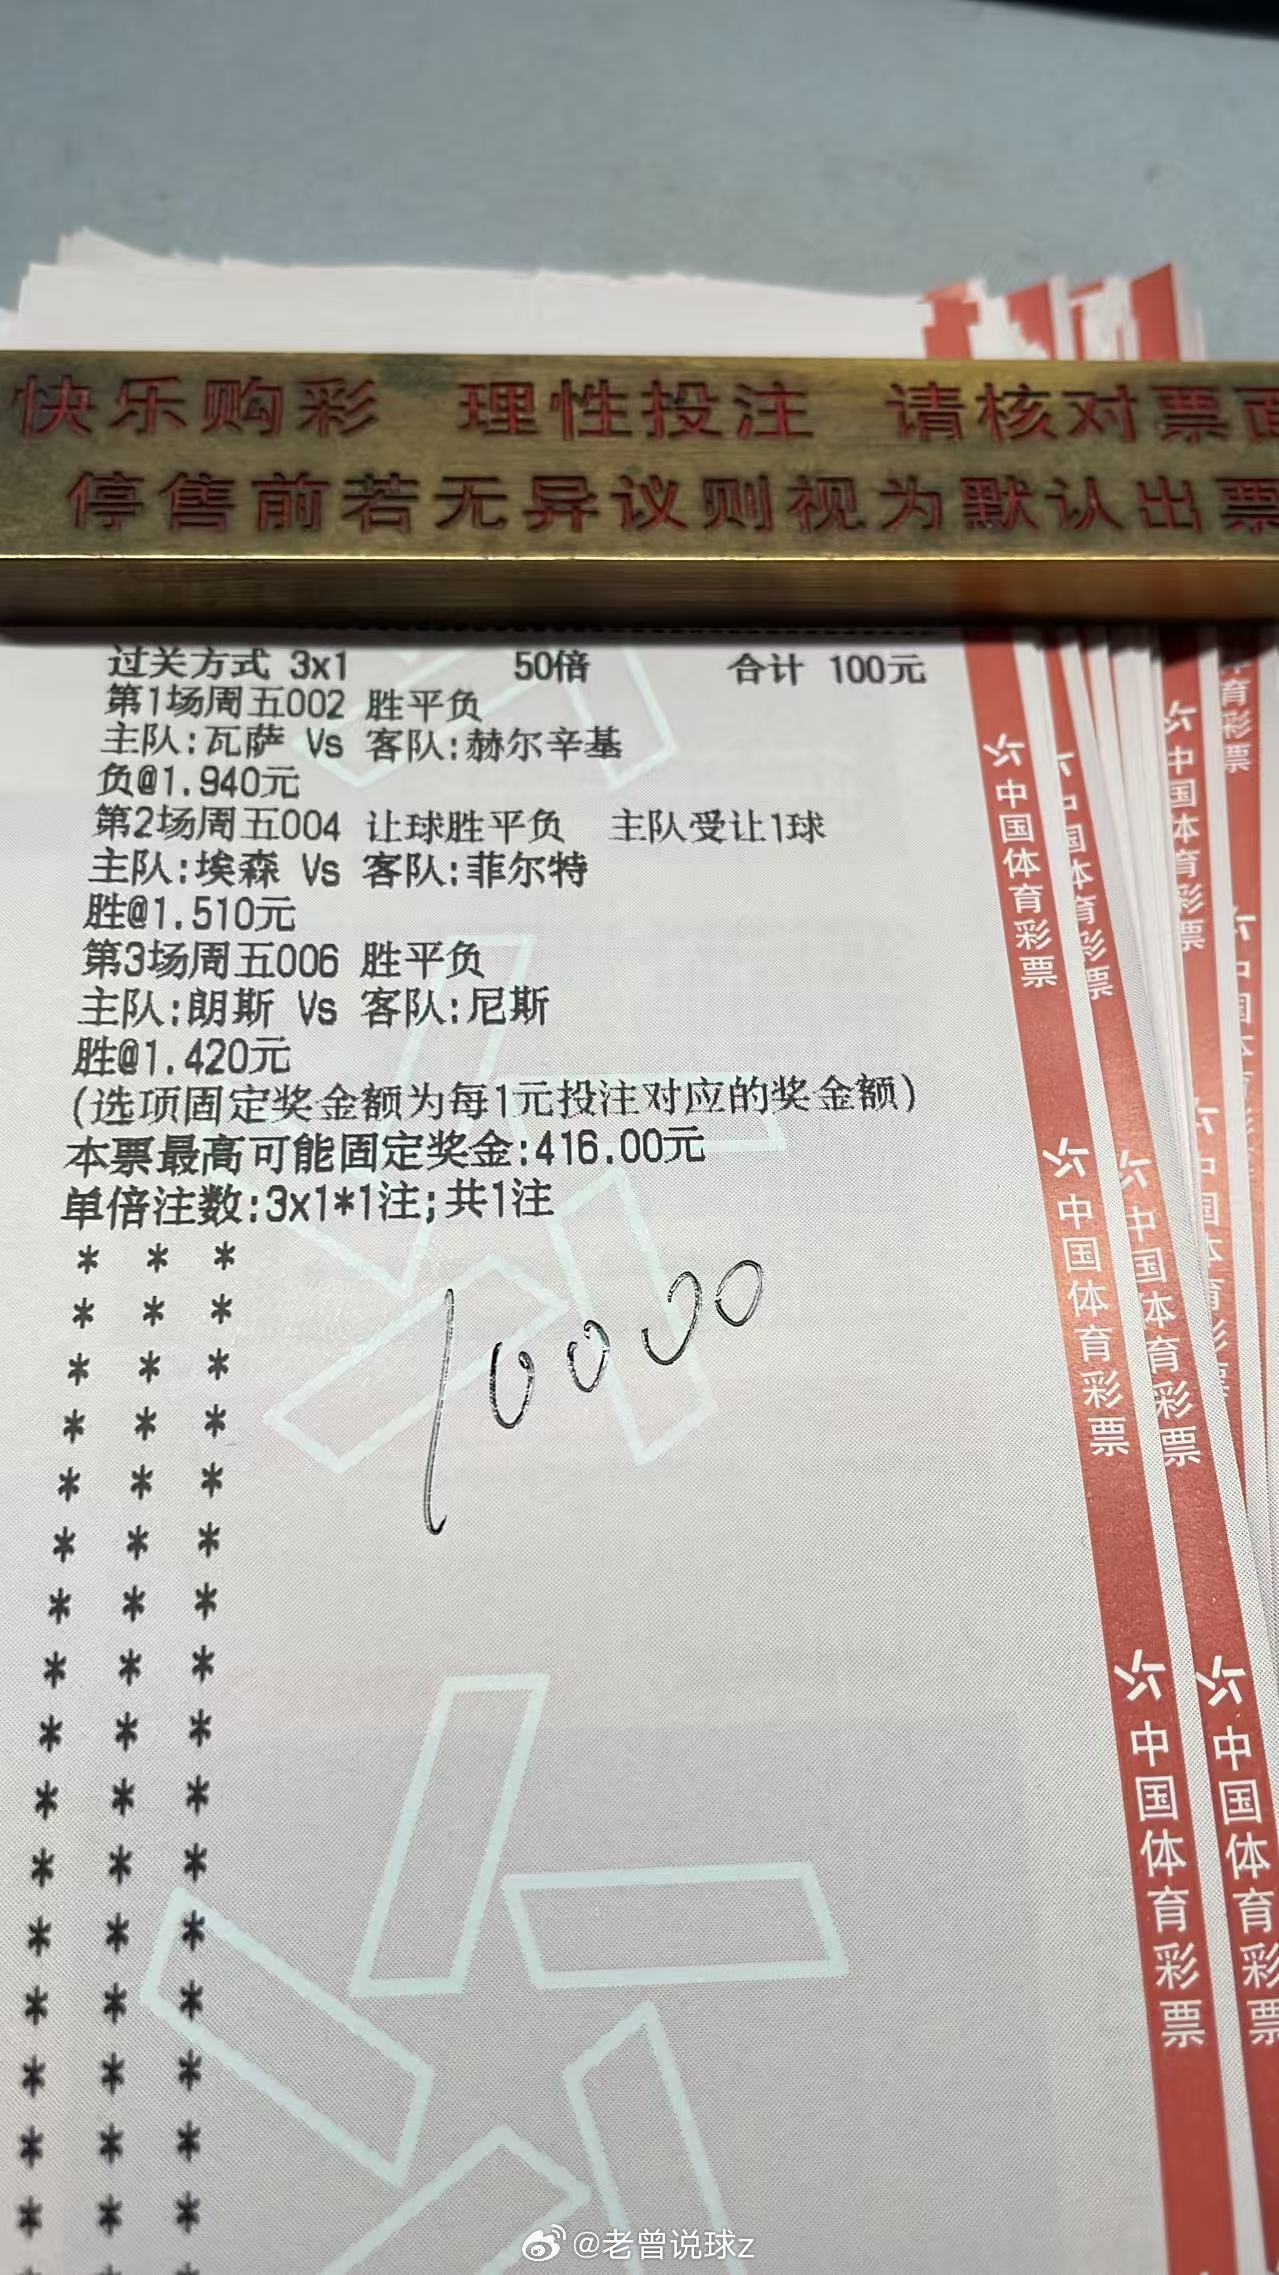 快乐购彩 理性投注 请核对票面
停售前若无异议则视为默认出票
过关方式 3x1 50倍 合计 100元
第1场周五002 胜平负
主队:瓦萨 Vs 客队:赫尔辛基
负@1.940元
第2场周五004 让球胜平负 主队受让1球
主队:埃森 Vs 客队:菲尔特
胜@1.510元
第3场周五006 胜平负
主队:朗斯 Vs 客队:尼斯
胜@1.420元
(选项固定奖金额为每1元投注对应的奖金额)
本票最高可能固定奖金:416.00元
单倍注数:3x1*1注;共1注
* * *
* * *
* * *
* * *
* * *
* * *
* * *
* * *
* * *
* * *
* * *
* * *
* * *
* * *
* * *
* * *
10000
中国体育彩票
中国体育彩票
中国体育彩票
中国体育彩票
中国体育彩票
中国体育彩票
中国体育彩票
@老曾说球z